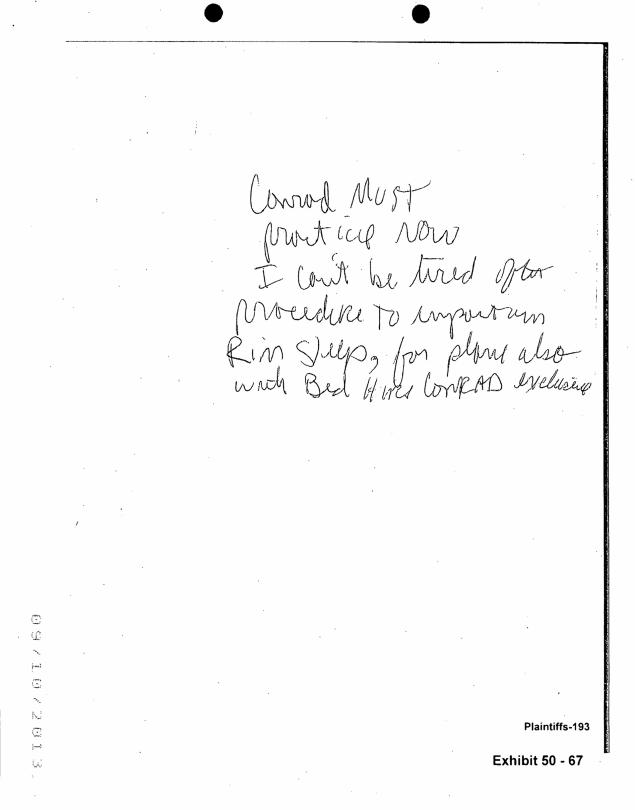 Conrad Must
practice NOW
I can't be tired after
procedure to important
Rim Sleep, for plane also
with Bed Hires CONRAD exclusive
09/10/2013
Plaintiffs-193
Exhibit 50 - 67